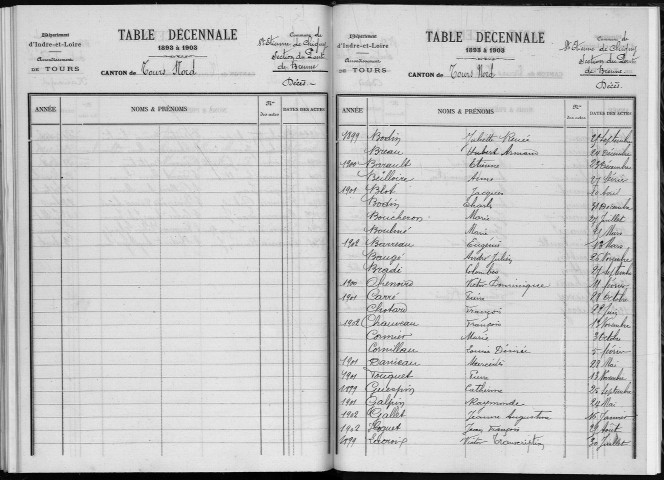 Département
d'Indre-et-Loire
Arrondissement
DE TOURS
TABLE DÉCENNALE
1893 à 1903
CANTON de Tours Nord
Commune de
St Etienne de Chigny
Section du Pont
de Bresme
Décès.
ANNÉE
NOMS & PRÉNOMS
Nos
des actes
DATES DES ACTES
Département
d'Indre-et-Loire
Arrondissement
DE TOURS
TABLE DÉCENNALE
1893 à 1903
CANTON de Tours Nord
Commune de
St Etienne de Chigny
Section du Pont
de Bresme
Décès.
ANNÉE
NOMS & PRÉNOMS
Nos
des actes
DATES DES ACTES
1899 Bodin Juliette Renée 27 Septembre
Breau Hubert Armand 24 Décembre
1900 Barault Etienne 23 Décembre
Beilloire Aimé 27 février
1901 Blot Jacques
Bodin Charles 31 Décembre
Boucheron Marie 27 Juillet
Marie Mars
1902 Barreau Eugénie 13 Mars
Baugé André Julien 25 Novembre
Bradé Colombes 27 Septembre
1900 Chenoire Victor Dominique 11 février
1901 Carré 28 Octobre
Chotard François 29 Juin
1902 Chauveau François 19 Novembre
Cormier Marie 3 Octobre
Cornilleau Louise Désirée 5 février
1901 Daniau Mercédès 28 Mai
1901 Fouquet Pierre 13 Novembre
1899 Guespin Catherine 25 Septembre
1901 Galpin Raymonde 24 Mai
1902 Gallet Jeanne Augustine 15 Janvier
1902 Hoguet Jean François 28 Août
1899 Victor 30 Juillet